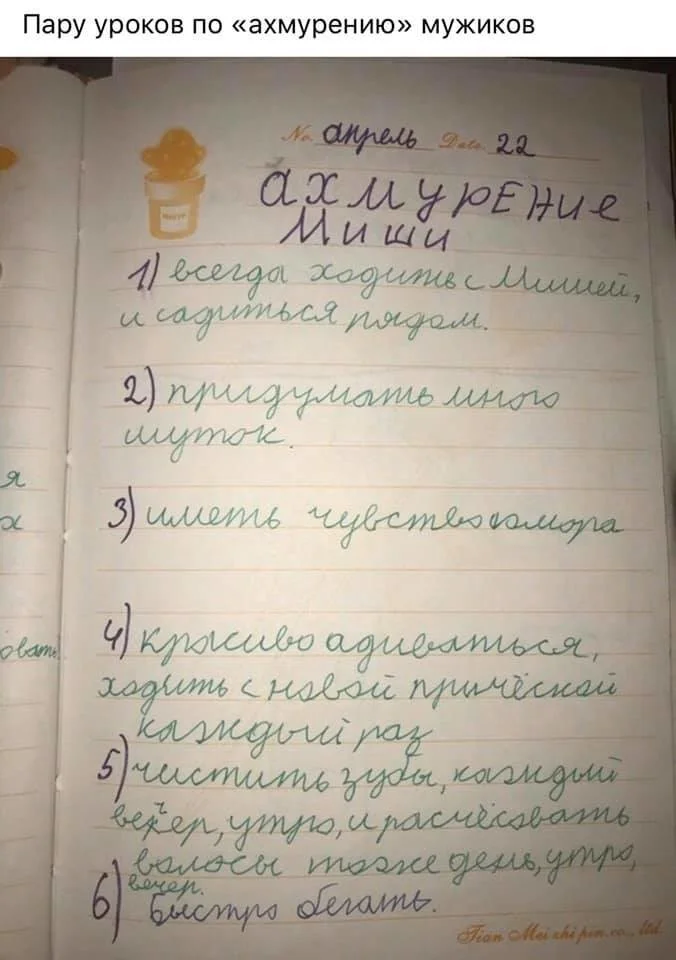 Пару уроков по «ахмурению» мужиков
No. апрель Date. 22
ахмурЕНие
Миши
1) всегда ходить с Мишей,
и садиться рядом.
2) придумать много
шуток.
3) иметь чувство юмора
4) красиво адиваться,
я
х
овать
ходить с новой причёской
каждый раз
5) чистить зубы, каждый
вечер, утро, и расчёсовать
волосы тоже день, утро,
вечер.
6) Быстро бегать.
Tian Mei zhi pin co., ltd.